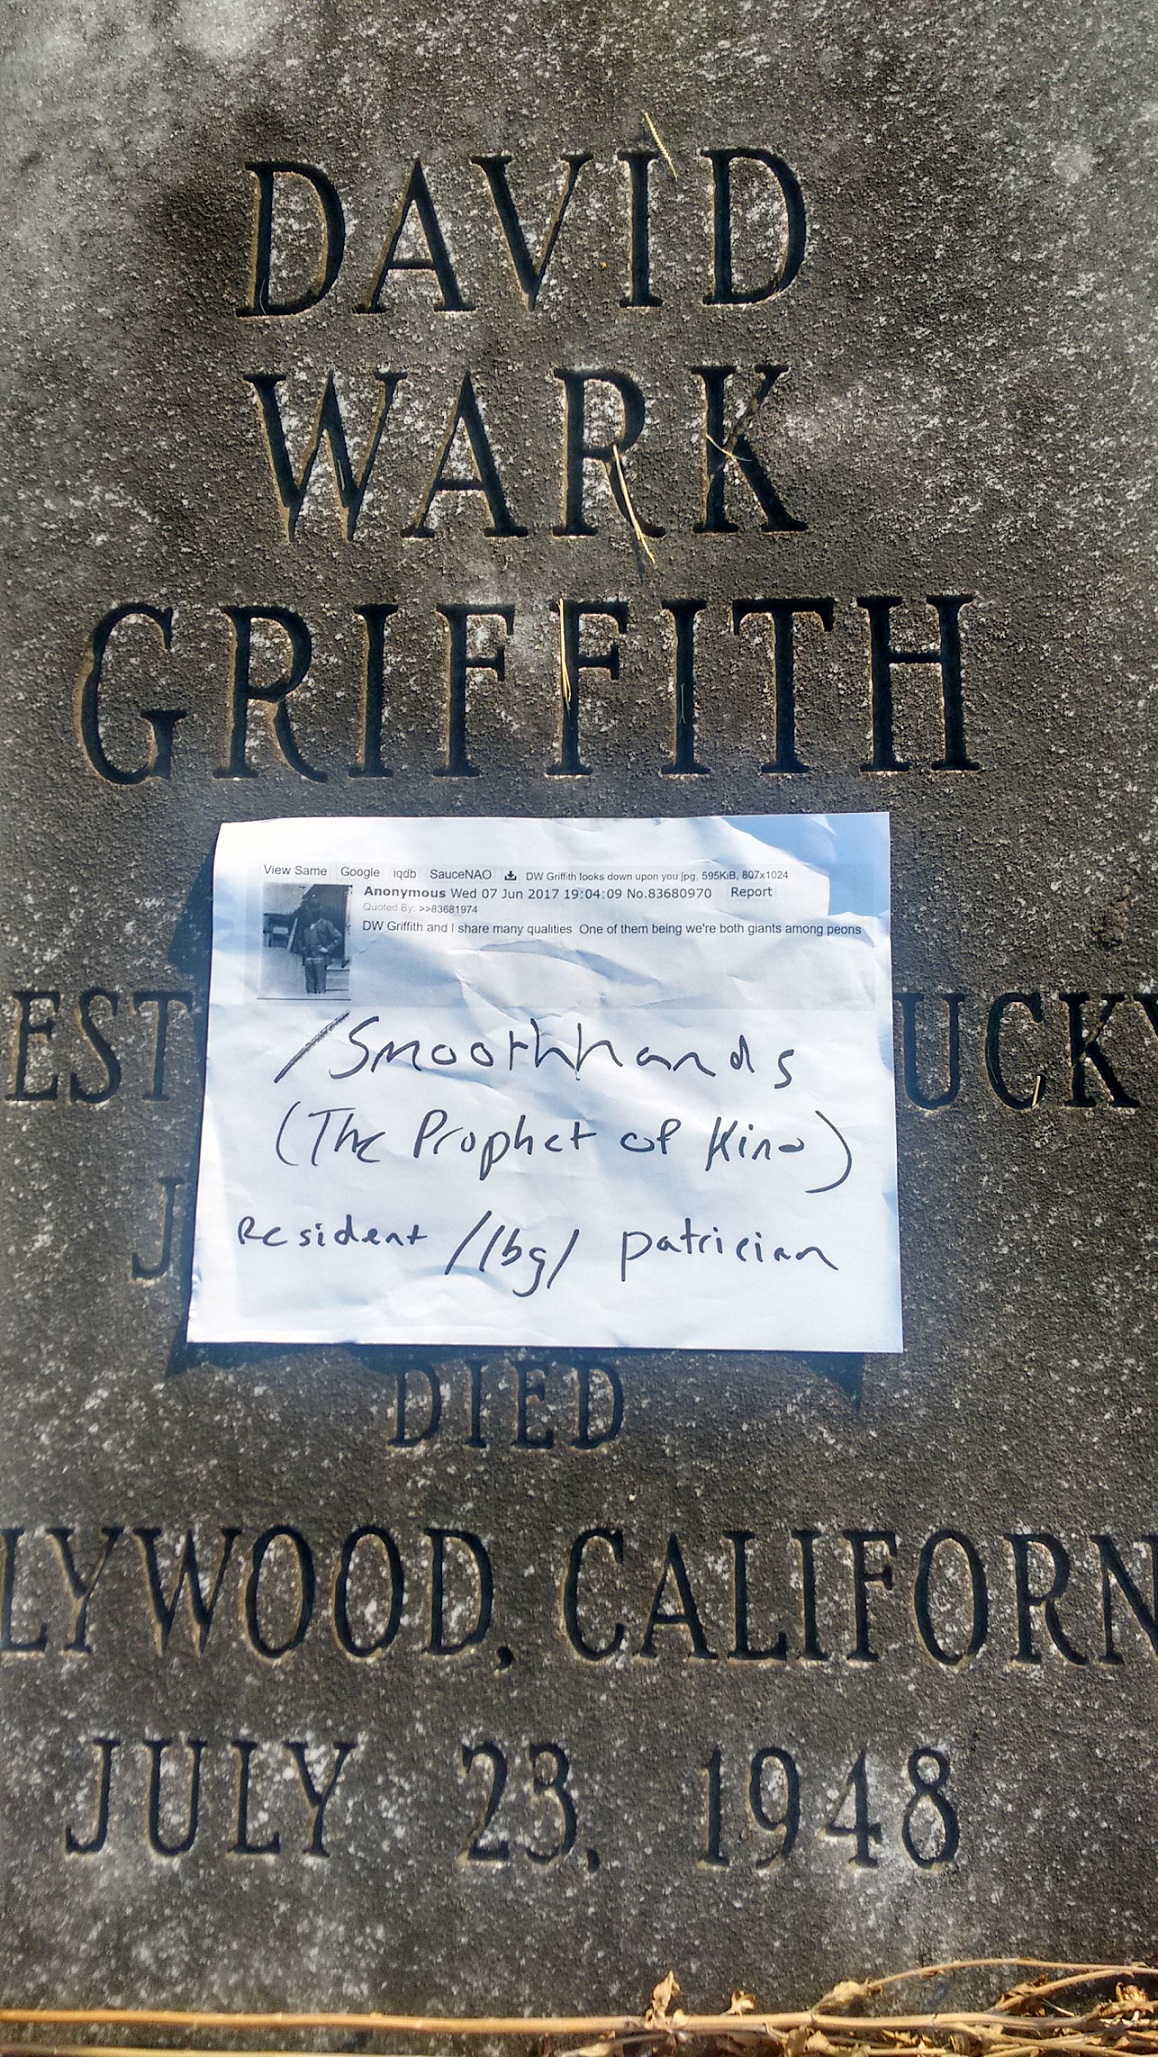 DAVID
WARK
GRIFFITH
View Same Google iqdb SauceNAO DW Griffith looks down upon you.jpg, 595KiB, 807x1024
Anonymous Wed 07 Jun 2017 19:04:09 No.83680970 Report
Quoted By: >>83681974
DW Griffith and I share many qualities One of them being we're both giants among peons
EST UCKY
/Smoothhands
(The Prophet of Kino)
J
Resident /lbg/ patrician
DIED
LYWOOD, CALIFORN
JULY 23, 1948